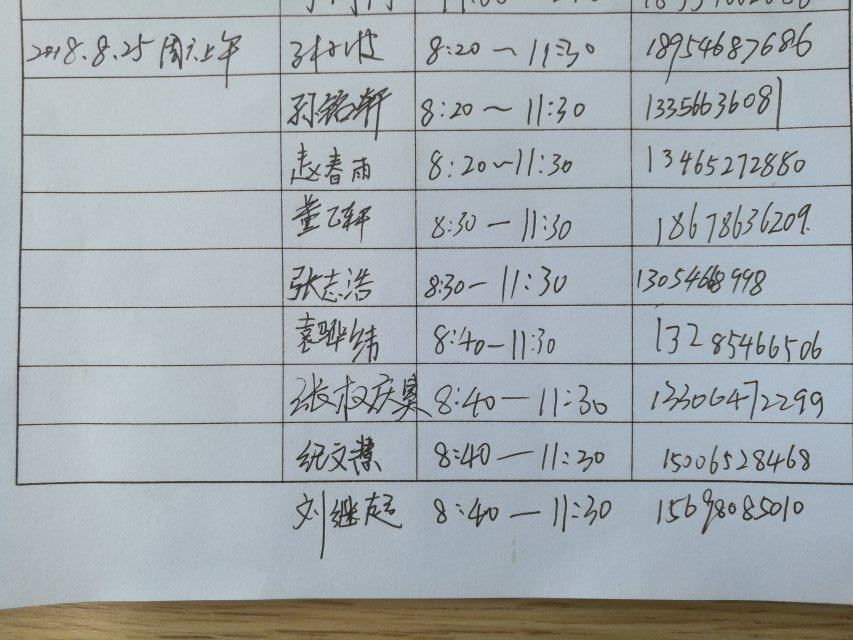 2018.8.25 周六上午 8:20~11:30 18954687686
孙铭轩 8:20~11:30 13356636081
赵春雨 8:20~11:30 13465272880
董乙轩 8:30-11:30 18678636209.
张志浩 8:30-11:30
袁骅纬 8:40-11:30 13285466506
张权庆昊 8:40-11:30 13306472299
纪文慧 8:40-11:30 15006528468
刘继超 8:40-11:30 15698085010